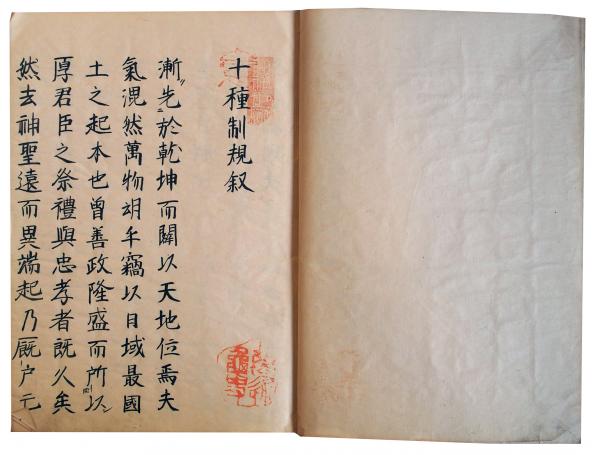 十種制規叙
漸先於乾坤而闢以天地位焉夫
氣混然萬物胡乎竊以日域最國
土之起本也曾善政隆盛而所以
厚君臣之祭禮與忠孝者既久矣
然去神聖遠而異端起乃厩戸元